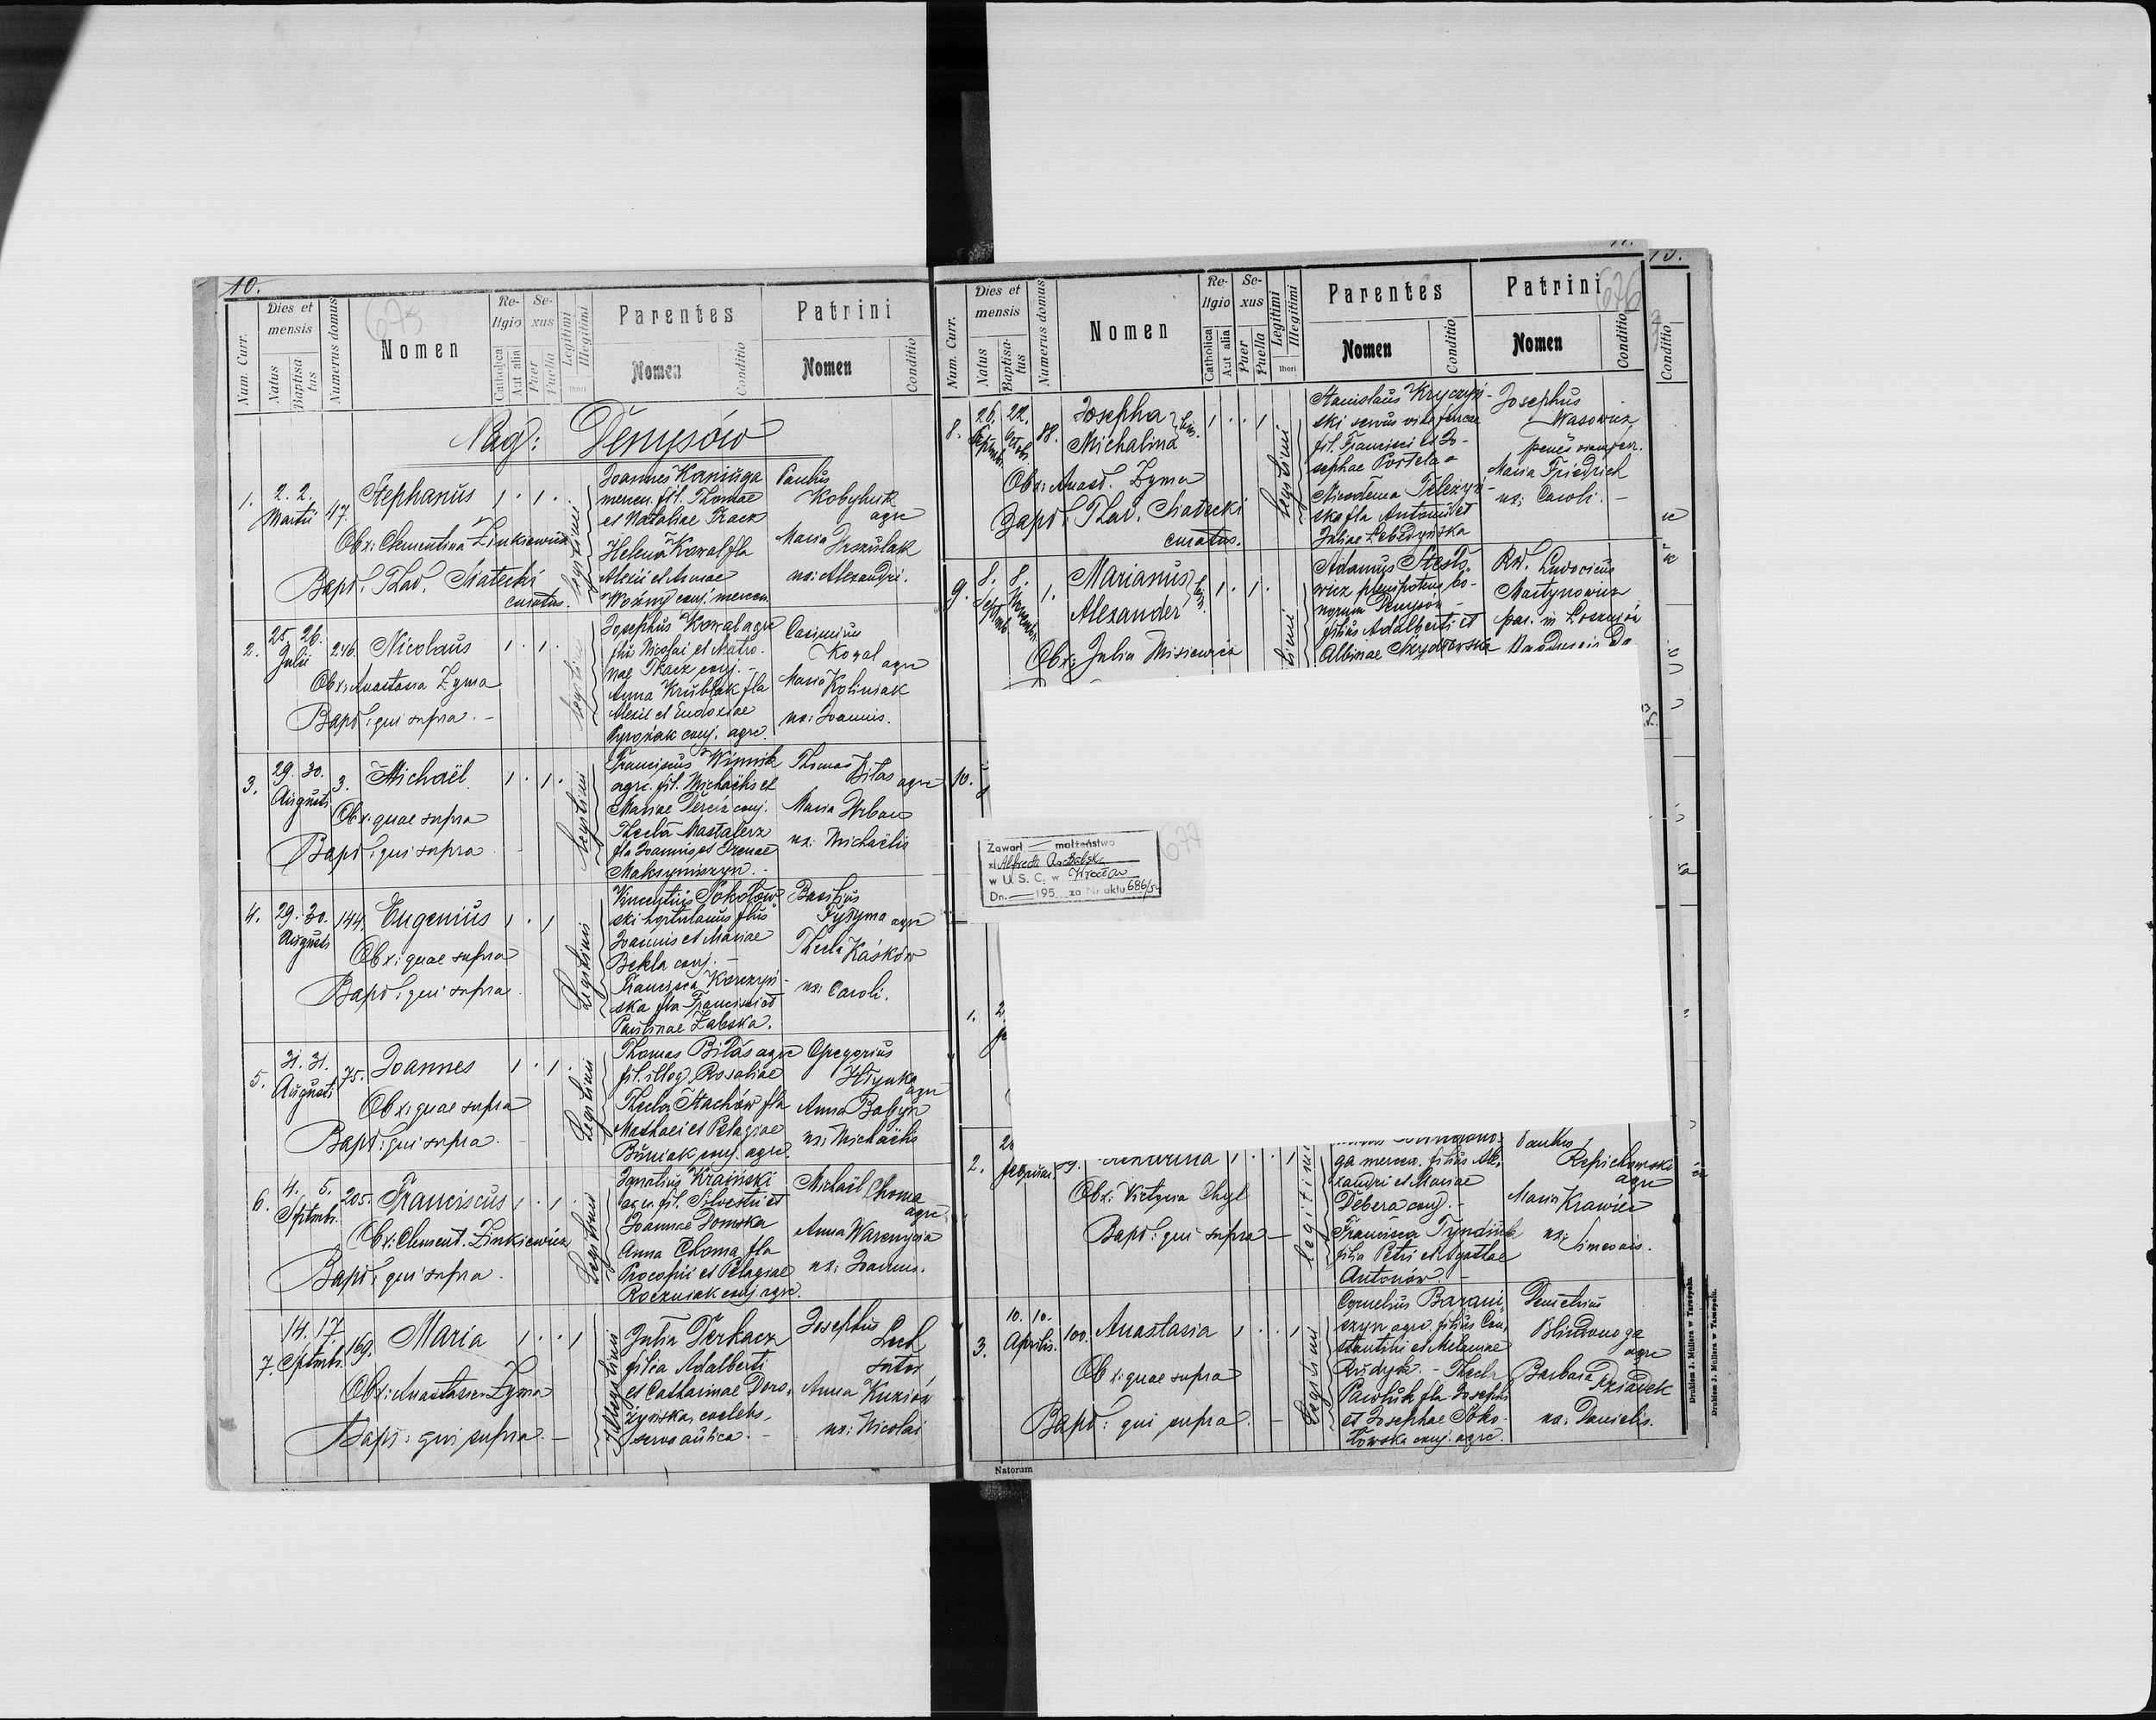 10.
675
Num. Curr.
Dies et mensis
Natus
Baptisatus
Numerus domus
Nomen
Religio
Catholica
Aut alia
Sexus
Puer
Puella
Legitimi
Illegitimi
thori
Parentes
Nomen
Conditio
Patrini
Nomen
Conditio
Pag: Denysów
1.
2. 2.
Martii
47.
Stephanus
1 . 1 .
Obx: Clementina Zinkiewicz
Bapt. Thad. Matecki
curatus.
legitimi
Joannes Kaniuga
mercen. fil. Thomae
et Nataliae Tracz
Helena Kowal fla
Alexii et Annae
Woźny conj. mercen.
Paulus
Kobyluk
agre
Maria Urszulak
ux: Alexandri.
2.
25. 26.
Julii
246.
Nicolaus
1 . 1 .
Obx: Anastasia Zyma
Bapt: qui supra. -
legitimi
Josephus Kowal agre
flii Nicolai et Matro-
nae Tkacz conj. -
Anna Krublak fla
Alexii et Eudoxiae
conj. agre.
Casimirus
Kowal agre
Maria Koliniak
ux: Joannis.
3.
29. 30.
Augusti
3.
Michaël
1 . 1 .
Obx: quae supra
Bapt: qui supra
legitimi
Franciscus Winnik
agre. fil. Michaëlis et
Mariae Dercia conj.
Thecla Mastalerz
fla Joannis et Irenae
Maksymiszyn. -
Thomas
Bilas agre
Maria Urban
ux: Michaëlis
4.
29. 30.
Augusti
144.
Eugenius
1 . 1
Obx: quae supra
Bapt: qui supra
Legitimi
Vincentius Sokołow-
ski hortulanus flius
Joannis et Mariae
Bekla conj. -
Francisca Korczyń-
ska fla Francisci et
Paulinae Żabska.
Basilius
agre
Thecla Kaśków
ux: Caroli.
5.
31. 31.
Augusti
75.
Joannes
1 . 1 .
Obx: quae supra
Bapt: qui supra.
Legitimi
Thomas Bilas agre
fil. illeg. Rosaliae
Thecla Stachów fla
Mathaei et Pelagiae
Buniak conj. agre.
Gregorius
Hłynka
agre
Anna Babyn
ux: Michaëlis
6.
4. 5.
Septmb.
205.
Franciscus
1 . 1 .
Obx: Clement. Zinkiewicz
Bapt: qui supra.
Legitimi
Ignatius Kraiński
agre. fil. Silvestri et
Joannae Domska
Anna Choma fla
Procopii et Pelagiae
Roczniak conj. agre.
Michaël Choma
agre
Anna Warenycia
ux: Joannis.
7.
14. 17.
Septmb.
169.
Maria
1 . . 1
Obx: Anastasia Zyma
Bapt: qui supra. -
Illegitimi
Julia Derkacz
filia Adalberti
et Catharinae Doro-
żyńska, caelebs,
serva aulica. -
Josephus
Lech
sutor
Anna Kuziów
ux: Nicolai
11.
676
Num. Curr.
Dies et mensis
Natus
Baptisatus
Numerus domus
Nomen
Religio
Catholica
Aut alia
Sexus
Puer
Puella
Legitimi
Illegitimi
thori
Parentes
Nomen
Conditio
Patrini
Nomen
Conditio
8.
26. 22.
Septmb. Octob.
88.
Josepha
Michalina
1 . . 1
Obx: Anast. Zyma
Bapt. Thad. Matecki
curatus.
legitimi
Stanislaus Kryczyń-
ski servus
fil. Francisci et Jo-
sephae Postela
Nicodema Teleżyń-
ska fla Antonii et
Juliae Lebedyńska
Josephus
Wasowicz
Maria Friedrich
ux: Caroli. -
9.
8. 8.
Septmb. Novemb.
1.
Marianus
Alexander
1 . 1 .
Obx: Julia Misiewicz
timi
wicz plenipotens bo-
norum Denysów -
filius Adalberti et
Albinae
Rd. Ludovicus
Martynowicz
par. in
10.
Zawarł małżeństwo
w U. S. C. w Wrocław
Dn. 195 za Nr aktu 686/54
677
1.
2.
2.
Catharina
1 . . 1
Obx: Victoria Chyl
Bapt: qui supra -
legitimi
ga mercen. filius Ale-
xandri et Mariae
Debera conj. -
Francisca Tyndiuk
filia Petri et Agathae
Antonów. -
Paulus
agre
Maria Krawiec
ux: Simeonis.
3.
10. 10.
Aprilis.
100.
Anastasia
1 . . 1
Obx: quae supra
Bapt: qui supra. -
Legitimi
Cornelius Barani-
szyn agre. filius Con-
stantini et Melaniae
Rudyk. - Thecla
Pawluk fla Josephi
et Josephae Soko-
łowska conj. agre.
Demetrius
agre
Barbara Dziadek
ux: Danielis.
Natorum
Drukiem J. Müllera w Tarnopolu.
13.
Conditio
Drukiem J. Müllera w Tarnopolu.